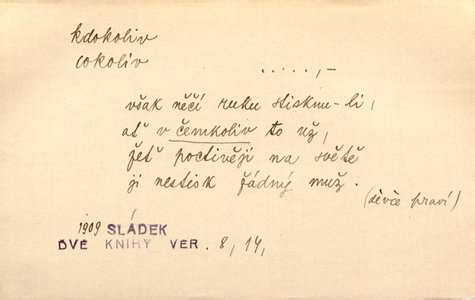 kdokoliv
cokoliv
....., -
však něčí ruku stisknu-li,
ať v čemkoliv to už,
žeť poctivěji na světě
ji nestisk řádný muž.
(děvče praví)
1909 SLÁDEK
DVĚ KNIHY VER. 8, 14,